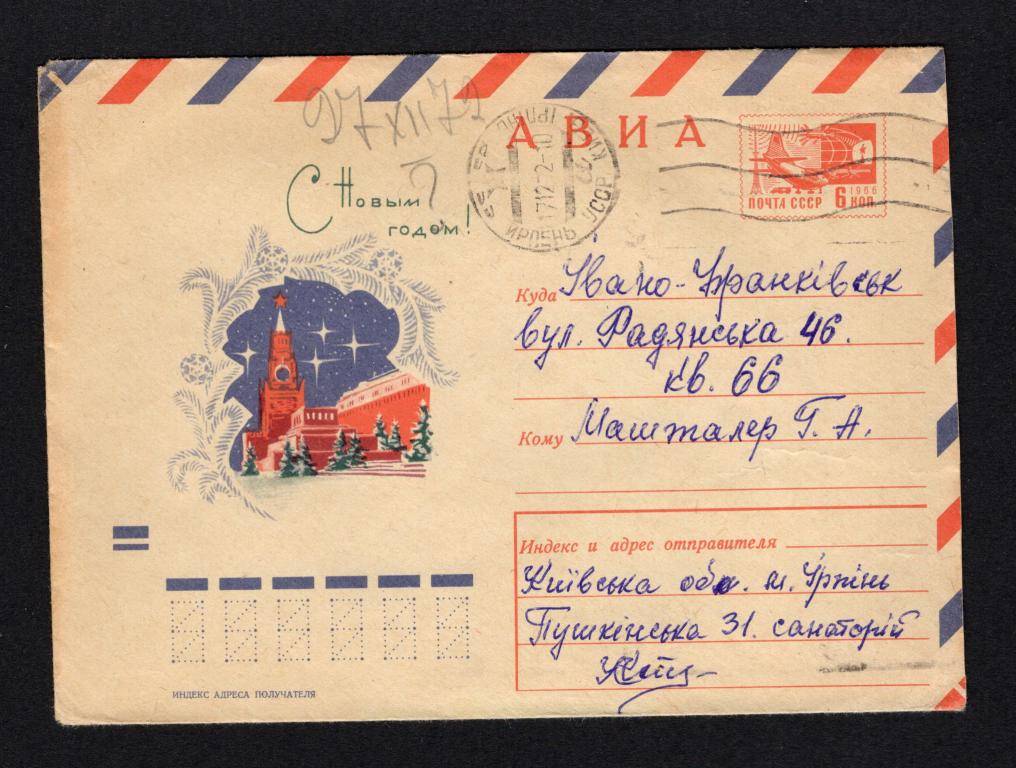 27 XII 72
АВИА
ІРПІНЬ
ИРПЕНЬ УССР
ПОЧТА СССР 6 КОП.
1966
С Новым
годом!
Куда Івано-Франківськ
вул. Радянська 46.
кв. 66
Кому Машталер Г. А.
Индекс и адрес отправителя
Київська обл. м. Ірпінь
Пушкінська 31. санаторій
ИНДЕКС АДРЕСА ПОЛУЧАТЕЛЯ